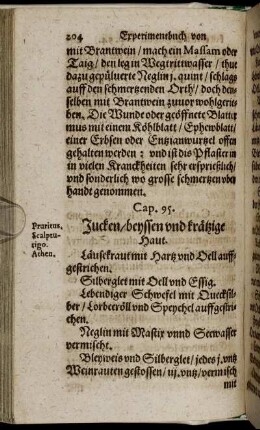 204 Experimentbuch von
mit Brantwein / mach ein Massam oder
Taig / den leg in Wegtrittwasser / thut
dazu gepüluerte Neglin j. quint / schlags
auff den schmertzenden Orth / doch den-
selben mit Brantwein zuuor wohlgerie-
ben. Die Wunde oder geöffnete Blatter
mus mit einem Köhlblatt / Ephewblatt /
einer Erbsen oder Entzianwurtzel offen
gehalten werden : vnd ist dis Pflaster in
in vielen Kranckheiten sehr ersprießlich /
vnd sonderlich wo grosse schmertzen vor-
handt genommen.
Cap. 95.
Jucken / beyssen vnd krätzige
Haut.
Pruritus,
Scalptu-
rigo.
Athen.
Läusekraut mit Hartz vnd Oell auff-
gestrichen.
Silberglet mit Oell vnd Essig.
Lebendiger Schwefel mit Quecksil-
ber / Lorbeeröll vnd Speychel auffgestri-
chen.
Neglin mit Mastix vnnd Seewasser
vermischt.
Bleyweis vnd Silberglet / jedes j. vntz
Weinrauten gestossen / iij. vntz / vermisch
mit